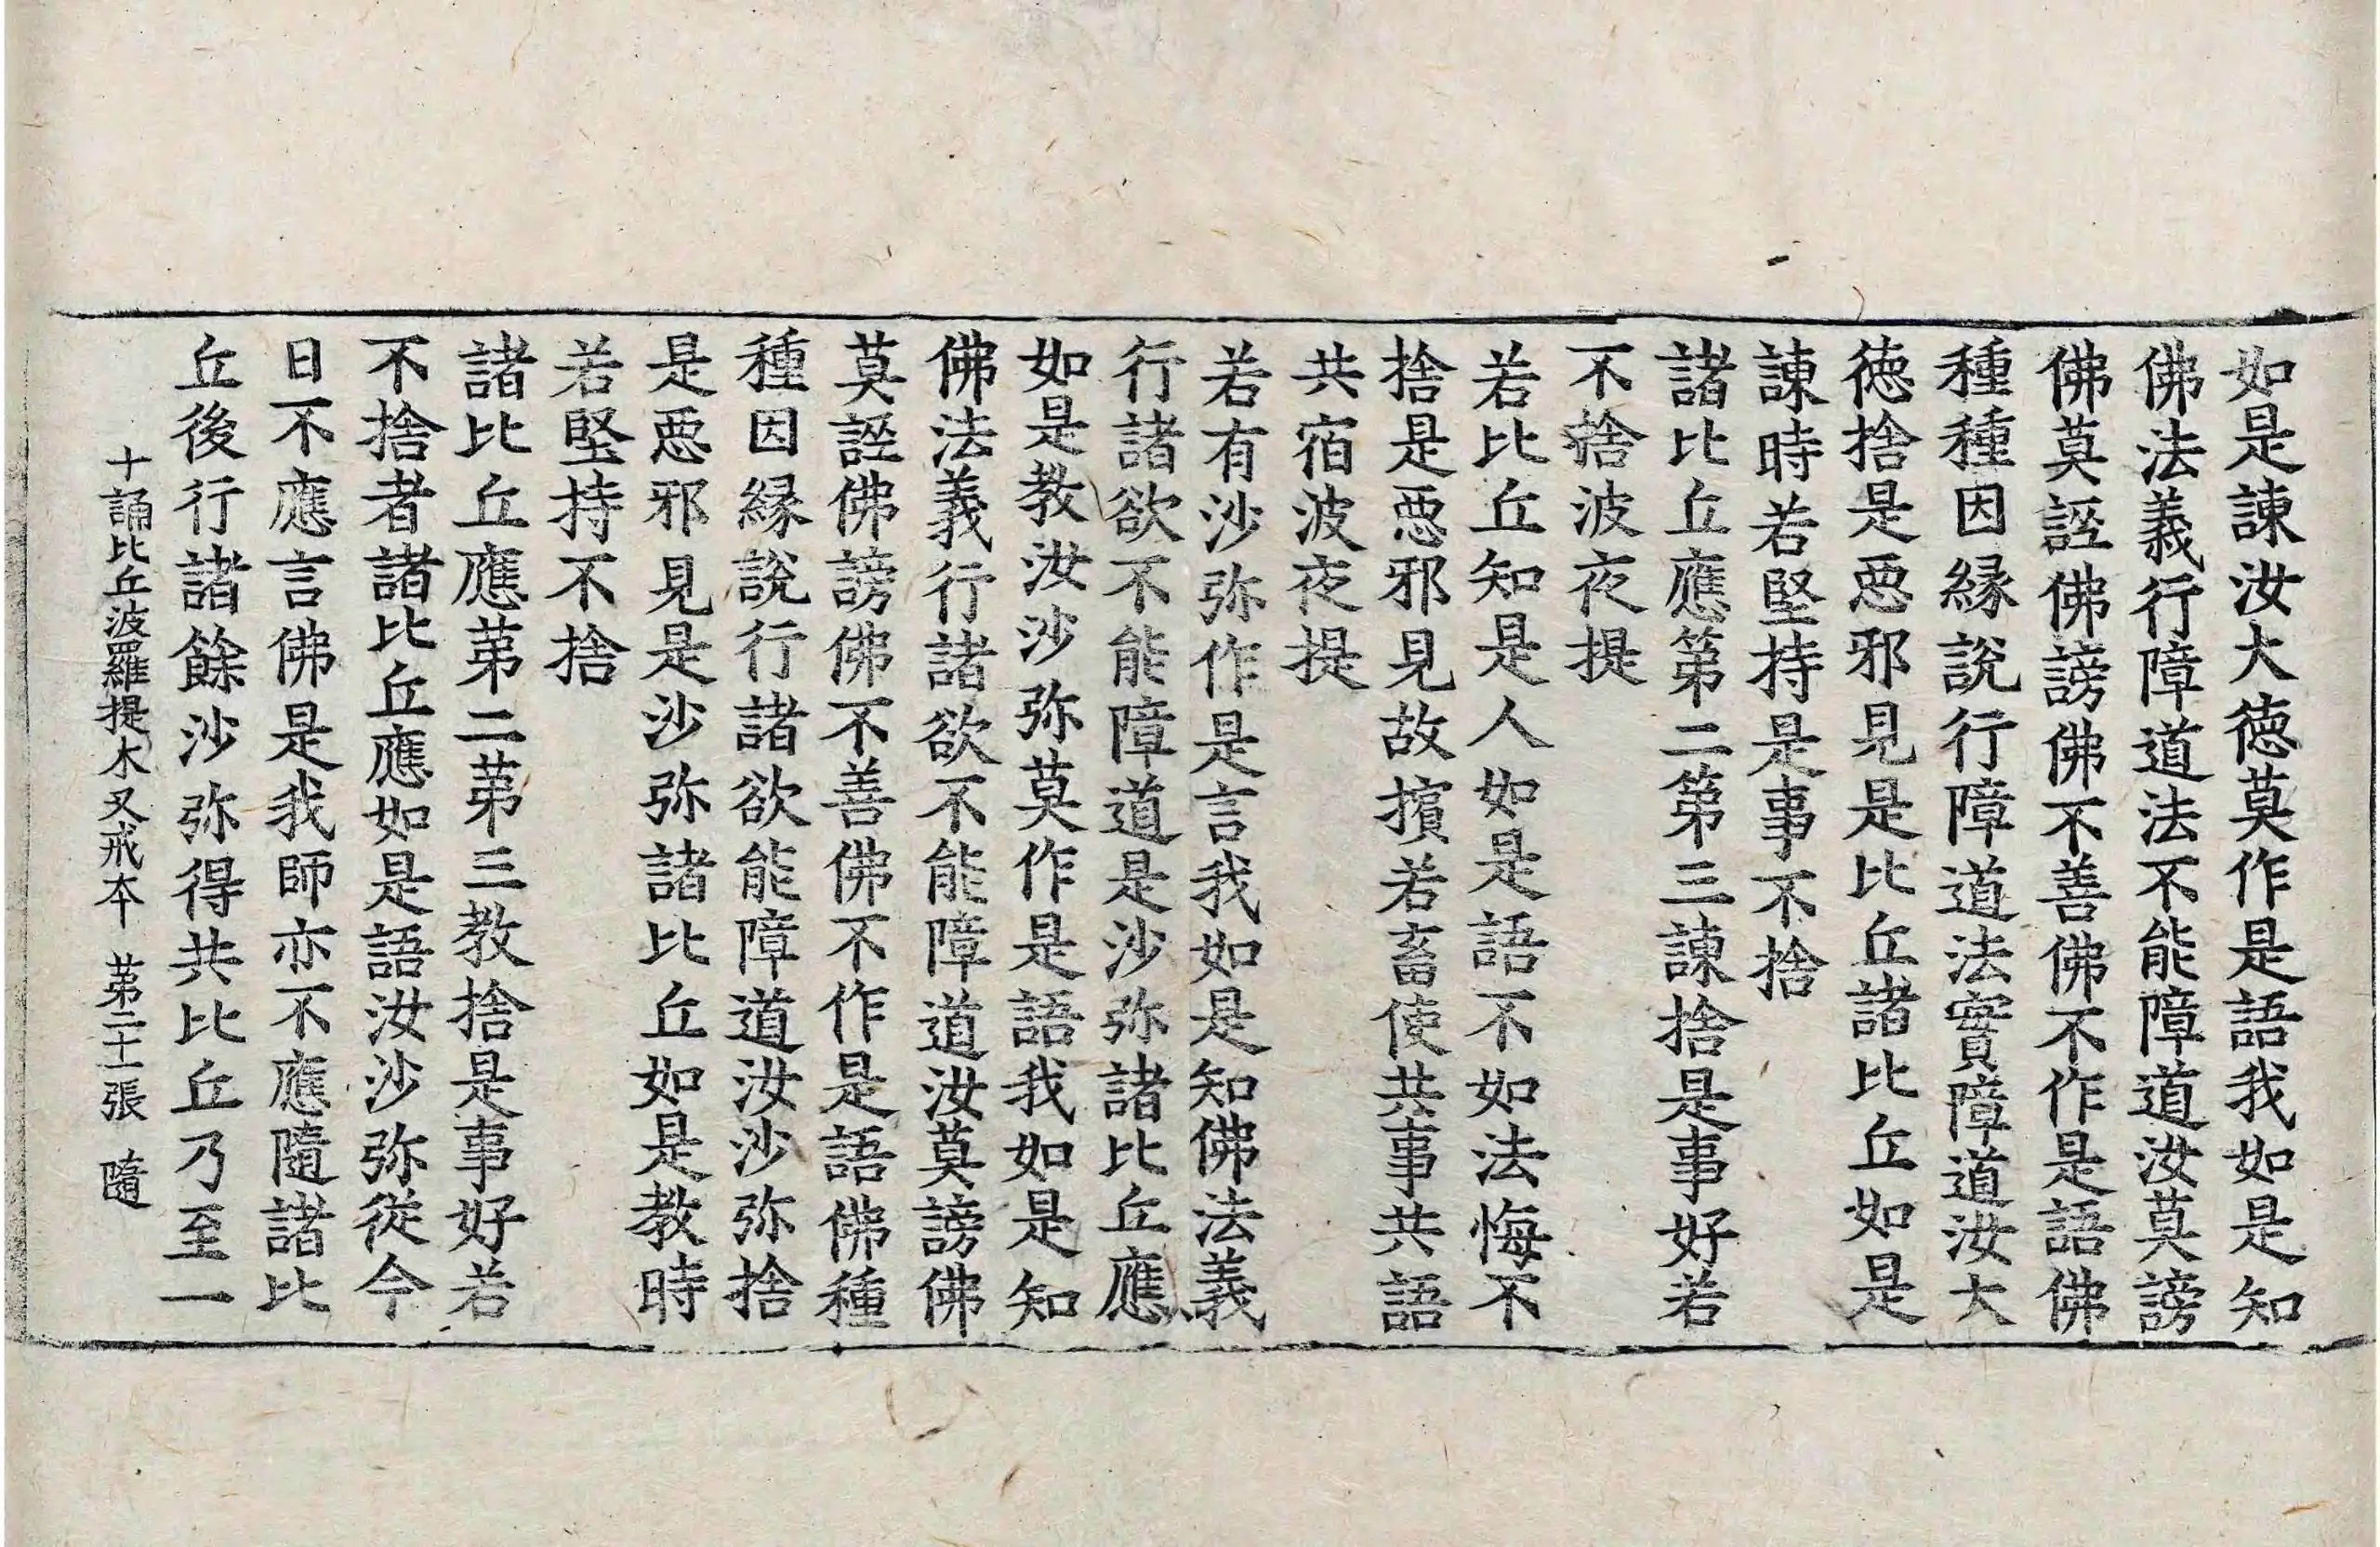 如是諫汝大徳莫作是語我如是知
佛法義行障道法不能障道汝莫謗
佛莫誣佛謗佛不善佛不作是語佛
種種因縁說行障道法實障道汝大
徳捨是惡邪見是比丘諸比丘如是
諫時若堅持是事不捨
諸比丘應第二第三諫捨是事好若
不捨波夜提
若比丘知是人如是語不如法悔不
捨是惡邪見故擯若畜使共事共語
共宿波夜提
若有沙弥作是言我如是知佛法義
行諸欲不能障道是沙弥諸比丘應
如是教汝沙弥莫作是語我如是知
佛法義行諸欲不能障道汝莫謗佛
莫誣佛謗佛不善佛不作是語佛種
種因縁說行諸欲能障道汝沙弥捨
是惡邪見是沙弥諸比丘如是教時
若堅持不捨
諸比丘應苐二苐三教捨是事好若
不捨者諸比丘應如是語汝沙弥從今
日不應言佛是我師亦不應隨諸比
丘後行諸餘沙弥得共比丘乃至一
十誦比丘波羅提木叉戒本 苐二十一張 隨